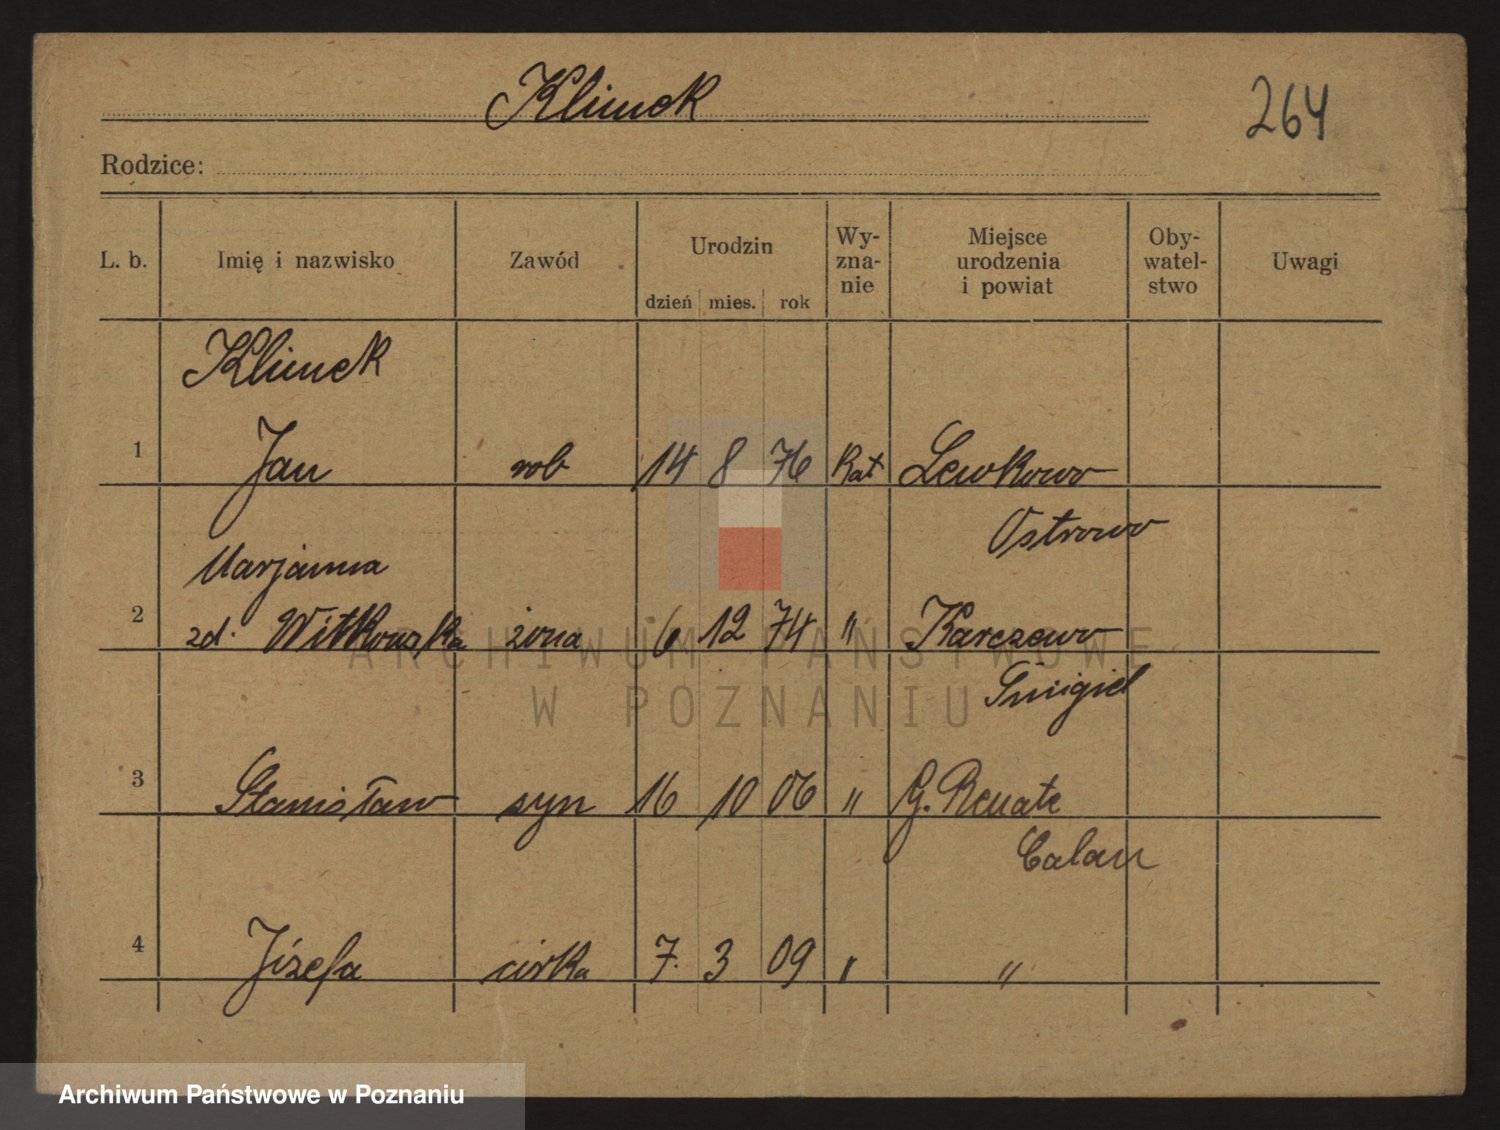 Klimek
264
Rodzice:
L. b. Imię i nazwisko Zawód Urodzin dzień mies. rok Wy-zna-nie Miejsce urodzenia i powiat Oby-watel-stwo Uwagi
Klimek
1 Jan rob 14 8 76 Kat Lewkowo
Ostrowo
Marjanna
2 zd. Witkowska żona 6 12 74 " Karczewo
Śmigiel
3 Stanisław syn 16 10 06 " G. Renate
Calau
4 Józefa córka 7. 3 09 " "
ARCHIWUM PAŃSTWOWE
W POZNANIU
Archiwum Państwowe w Poznaniu